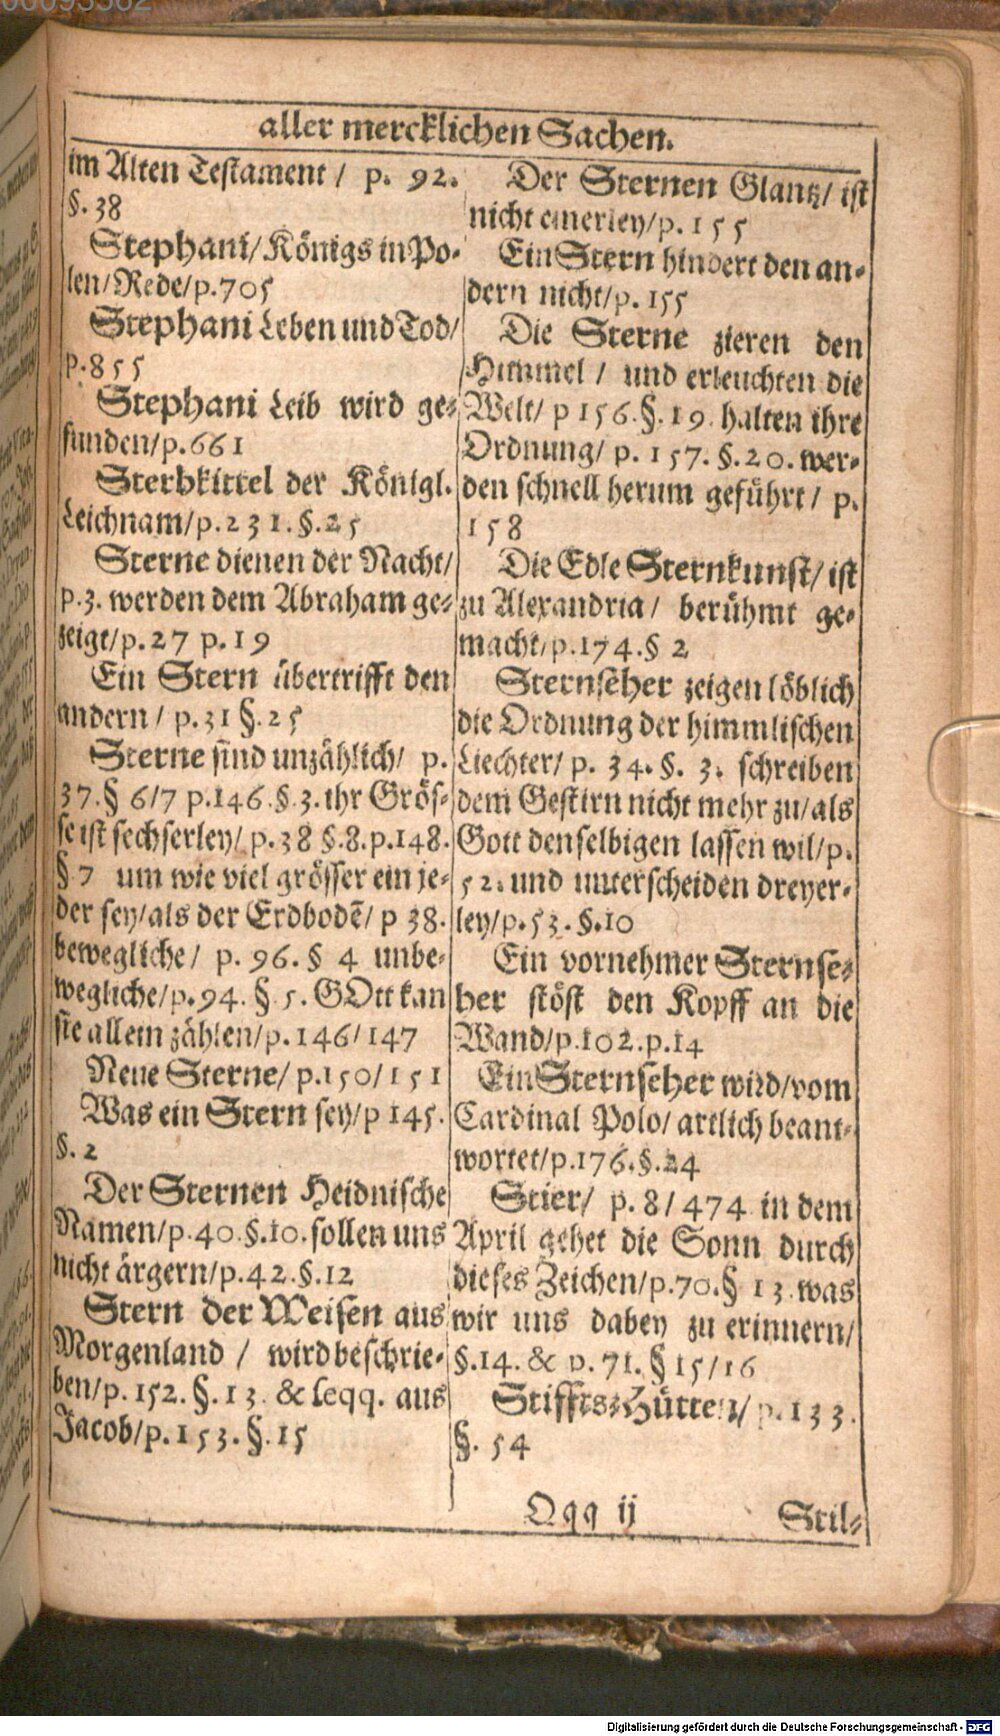 aller mercklichen Sachen.
im Alten Testament / p. 92.
§. 38
Stephani/ Königs in Po-
len/ Rede/ p. 705
Stephani Leben und Tod/
p. 855
Stephani Leib wird ge-
funden/ p. 661
Sterbkittel der Königl.
Leichnam/ p. 231. §. 25
Sterne dienen der Nacht/
p. 3. werden dem Abraham ge-
zeigt/ p. 27 p. 19
Ein Stern übertrifft den
andern / p. 31 §. 25
Sterne sind unzählich/ p.
37. § 6/7 p. 146. §. 3. ihr Grös-
se ist sechserley/ p. 38 §. 8. p. 148.
§ 7 um wie viel grösser ein je-
der sey/ als der Erdbodē/ p 38.
bewegliche / p. 96. § 4 unbe-
wegliche/ p. 94. § 5. GOtt kan
sie allein zählen/ p. 146/ 147
Neue Sterne/ p. 150/ 151
Was ein Stern sey/ p 145.
§. 2
Der Sternen Heidnische
Namen/ p. 40. §. 10. sollen uns
nicht ärgern/ p. 42. §. 12
Stern der Weisen aus
Morgenland / wird beschrie-
ben/ p. 152. §. 13. & seqq. aus
Jacob/ p. 153. §. 15
Der Sternen Glantz/ ist
nicht einerley/ p. 155
Ein Stern hindert den an-
dern nicht/ p. 155
Die Sterne zieren den
Himmel / und erleuchten die
Welt/ p 156. §. 19. halten ihre
Ordnung/ p. 157. §. 20. wer-
den schnell herum geführt / p.
158
Die Edle Sternkunst/ ist
zu Alexandria / berühmt ge-
macht/ p. 174. § 2
Sternseher zeigen löblich
die Ordnung der himmlischen
Liechter/ p. 34. §. 3. schreiben
dem Gestirn nicht mehr zu/ als
Gott denselbigen lassen wil/ p.
52. und unterscheiden dreyer-
ley/ p. 53. §. 10
Ein vornehmer Sternse-
her stöst den Kopff an die
Wand/ p. 102. p. 14
Ein Sternseher wird/ vom
Cardinal Polo/ artlich beant-
wortet/ p. 176. §. 24
Stier/ p. 8/ 474 in dem
April gehet die Sonn durch
dieses Zeichen/ p. 70. § 13. was
wir uns dabey zu erinnern/
§. 14. & p. 71. § 15/ 16
Stiffts-Hütten/ p. 133.
§. 54
Qqq ij
Stil-
Digitalisierung gefördert durch die Deutsche Forschungsgemeinschaft - DFG